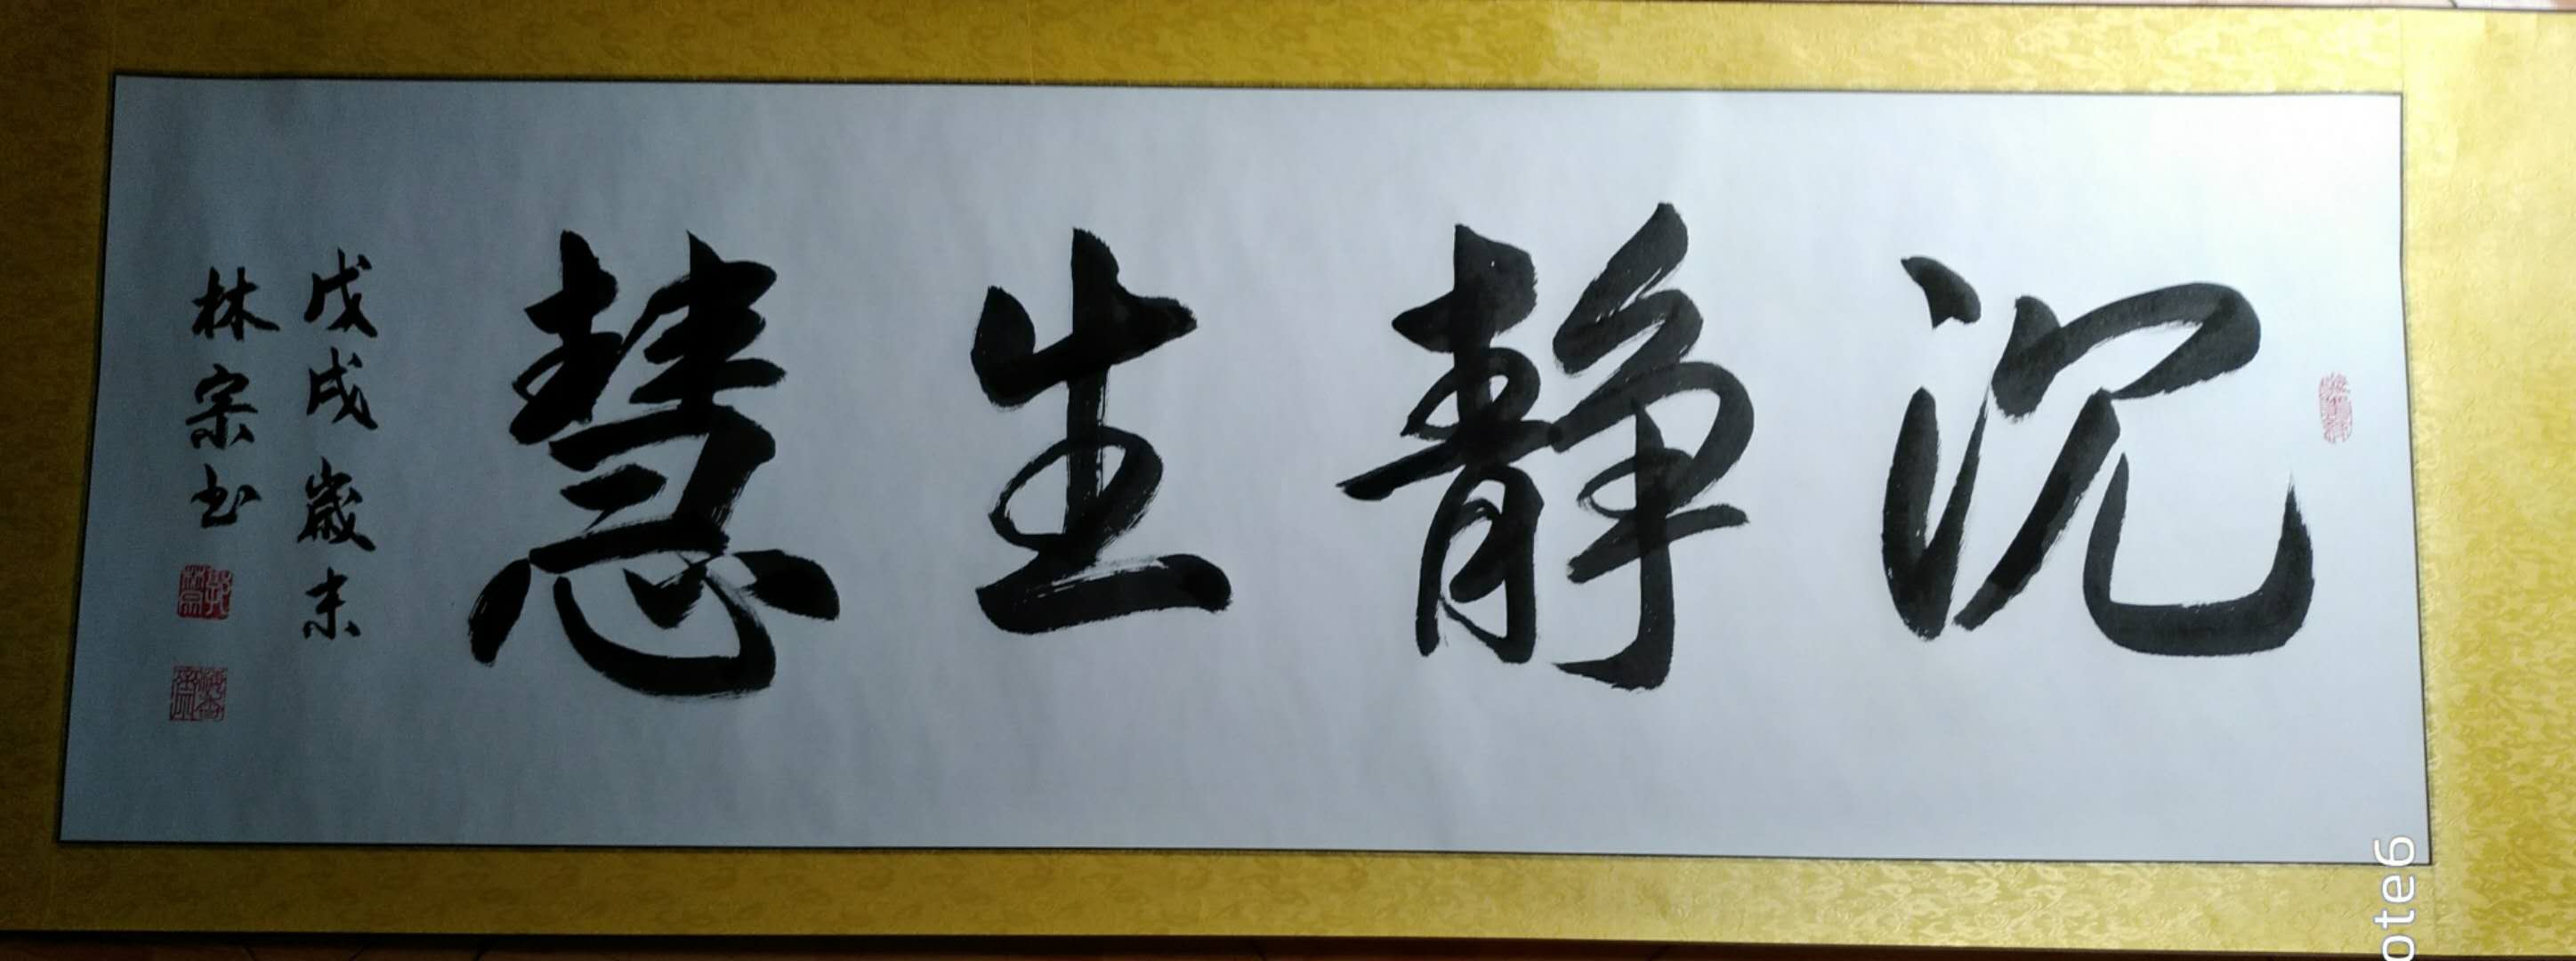 沉静生慧
戊戌歲末
林宗书
ote6